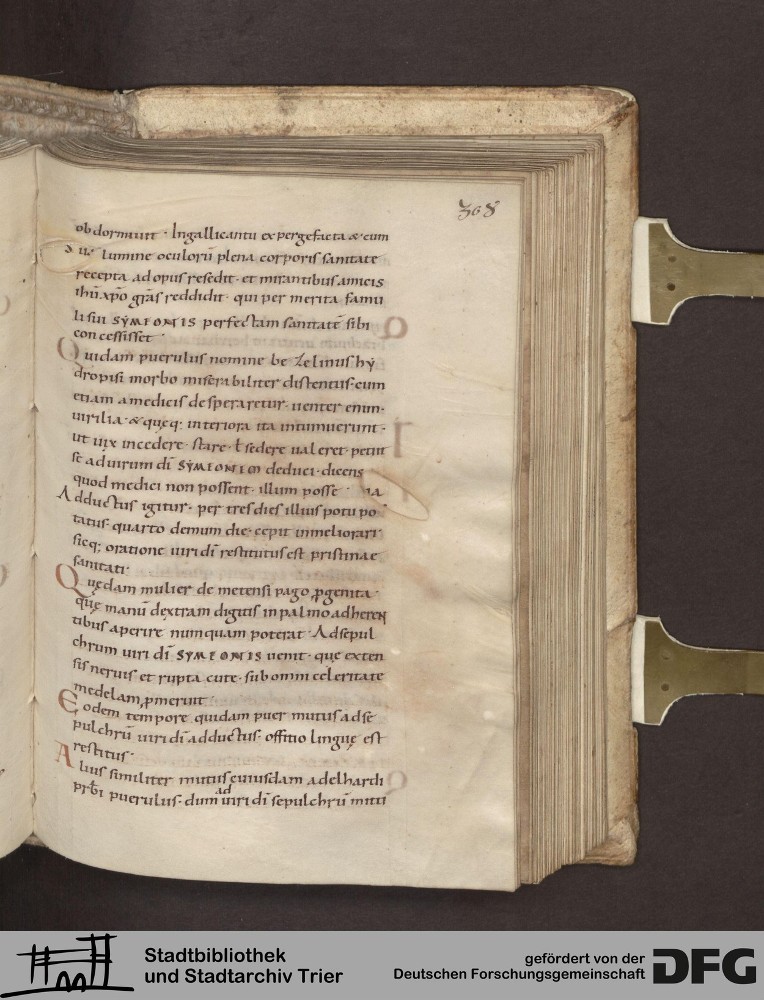 368
obdormiuit · Ingallicantu expergefacta & cum
lumine oculorū plena corporis sanitate
recepta adopus resedit · et mirantibus amicis
ihū xpo grās reddidit · qui per merita famu
li sui SYMEONIS perfectam sanitatē sibi
concessisset ·
Quidam puerulus nomine bezelinus hy
dropisi morbo miserabiliter distentus · cum
etiam amedicis desperaretur · uenter enim ·
uirilia · & quęq; interiora ita intumuerunt ·
ut uix incedere · stare · ł sedere ualeret · petiit
se aduirum dī SYMEONEM deduci · dicens
quod medici non possent · illum posse
Adductus igitur · per tres dies illius potu po
tatus · quarto demum die · cepit inmeliorari
sicq; oratione uiri dī restitutus est pristinae
sanitati ·
Quędam mulier de metensi pago ꝓgenita ·
quę manū dextram digitis in palmo adheren
tibus aperire numquam poterat · Adsepul
chrum uiri dī SYMEONIS uenit · quę exten
sis neruis et rupta cute · sub omni celeritate
medelam ꝓmeruit ·
Eodem tempore quidam puer mutus adse
pulchrū uiri dī adductus · offitio linguę est
restitus ·
Alius similiter mutus cuiusdam adelhardi
prbī puerulus · dum ad uiri dī sepulchrū mitti
Stadtbibliothek
und Stadtarchiv Trier
gefördert von der
Deutschen Forschungsgemeinschaft
DFG